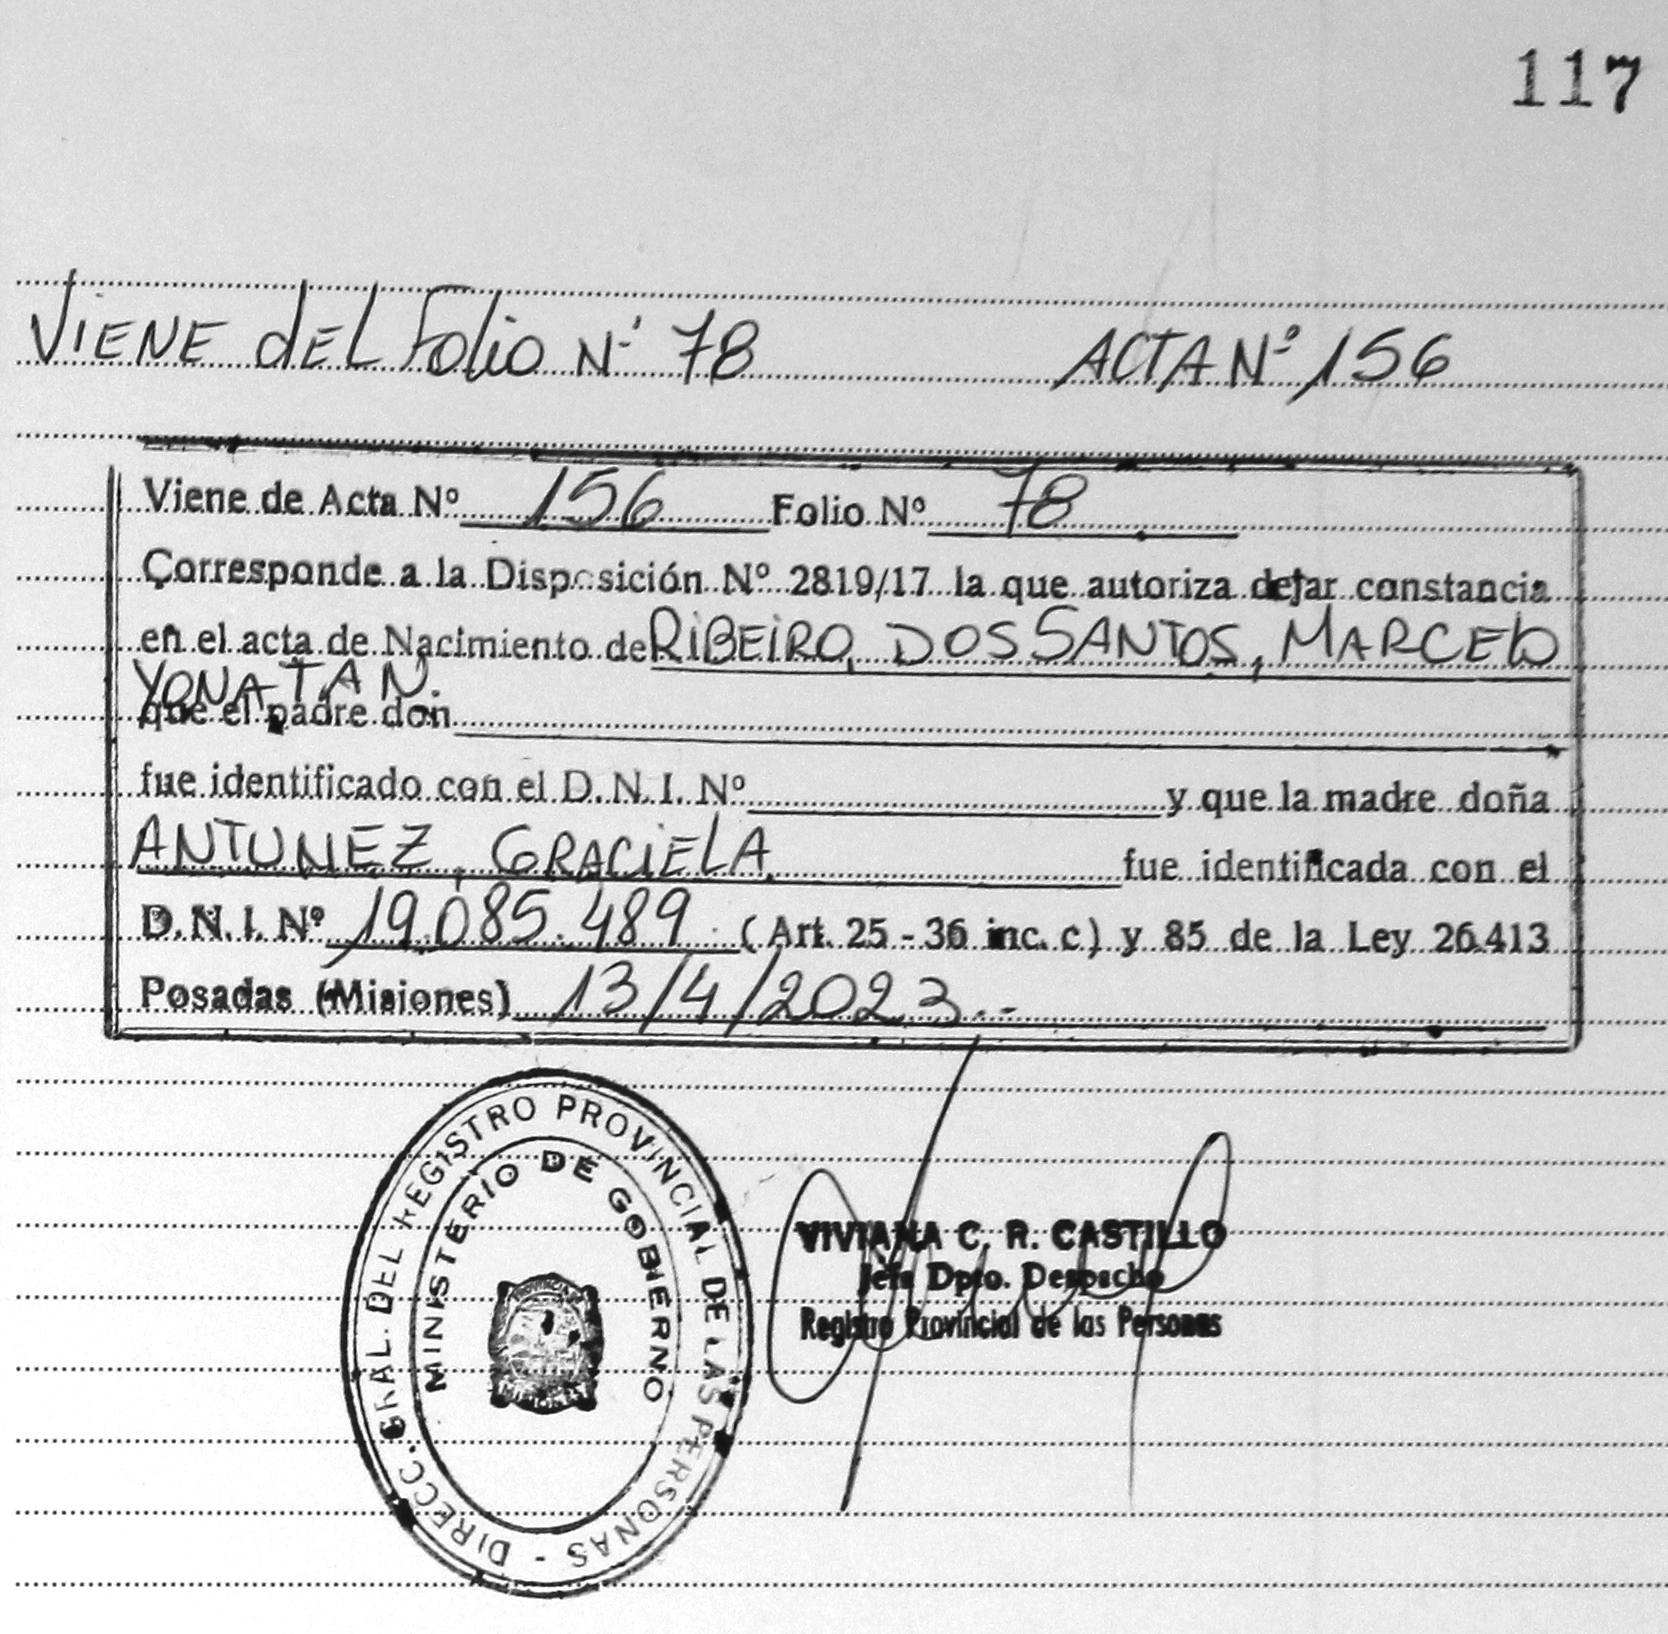 117
VIENE dEL Folio Nº 78 ACTA Nº 156
Viene de Acta Nº 156 Folio Nº 78
Corresponde a la Disposición Nº 2819/17 la que autoriza dejar constancia
en el acta de Nacimiento de RIBEIRO, DOS SANTOS, MARCELO
YONATAN.
que el padre don
fue identificado con el D.N.I. Nº y que la madre doña
ANTUNEZ, GRACIELA fue identificada con el
D.N.I. Nº 19.085.489. (Art. 25 - 36 inc. c) y 85 de la Ley 26.413
Posadas (Misiones) 13/4/2023.-
DIRECC. GRAL. DEL REGISTRO PROVINCIAL DE LAS PERSONAS -
MINISTERIO DE GOBIERNO
MISIONES
VIVIANA C. R. CASTILLO
Jefa Dpto. Despacho
Registro Provincial de las Personas